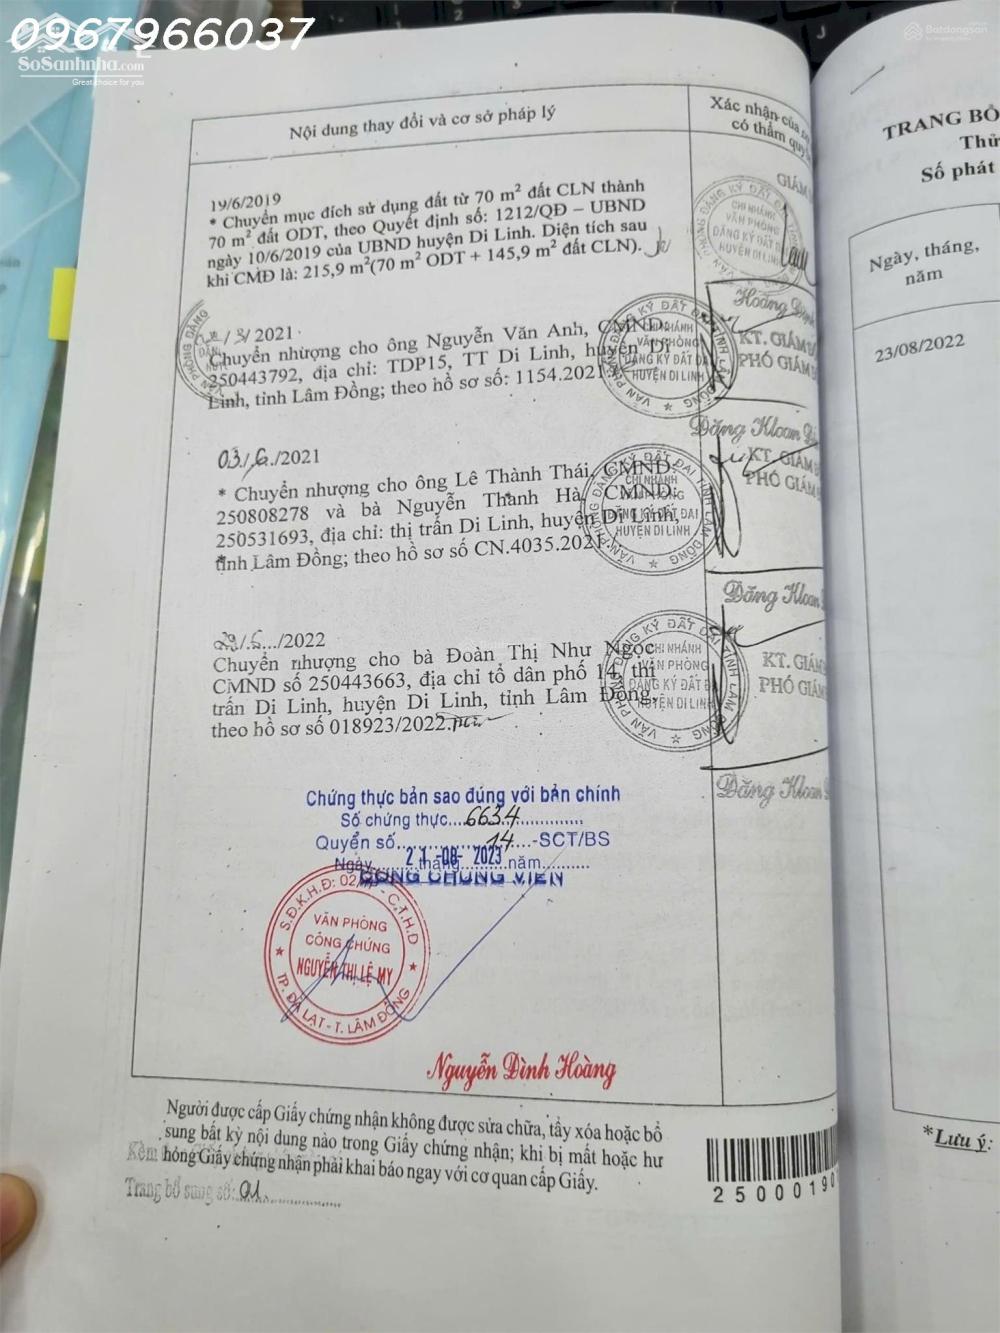 0967966037
SoSanhnha.com
Great choice for you
Batdongsan
Nội dung thay đổi và cơ sở pháp lý
Xác nhận của
có thẩm quy
19/6/2019
* Chuyển mục đích sử dụng đất từ 70 m² đất CLN thành
70 m² đất ODT, theo Quyết định số: 1212/QĐ – UBND
ngày 10/6/2019 của UBND huyện Di Linh. Diện tích sau
khi CMĐ là: 215,9 m²(70 m² ODT + 145,9 m² đất CLN).
GIÁM
CHI NHÁNH
VĂN PHÒNG
ĐĂNG KÝ ĐẤT
HUYỆN DI LINH
Hoàng Đình
/3/2021
Chuyển nhượng cho ông Nguyễn Văn Anh, CMND:
250443792, địa chỉ: TDP15, TT Di Linh, huyện Di
Linh, tỉnh Lâm Đồng; theo hồ sơ số: 1154.2021
VĂN PHÒNG ĐĂNG KÝ ĐẤT ĐAI TỈNH LÂM ĐỒNG
CHI NHÁNH
VĂN PHÒNG
ĐĂNG KÝ ĐẤT ĐAI
HUYỆN DI LINH
KT. GIÁM
PHÓ GIÁM
Đặng Kloan
03/6/2021
* Chuyển nhượng cho ông Lê Thành Thái, CMND:
250808278 và bà Nguyễn Thanh Hà, CMND:
250531693, địa chỉ: thị trấn Di Linh, huyện Di Linh,
tỉnh Lâm Đồng; theo hồ sơ số CN.4035.2021
VĂN PHÒNG ĐĂNG KÝ ĐẤT ĐAI TỈNH LÂM ĐỒNG
CHI NHÁNH
VĂN PHÒNG
ĐĂNG KÝ ĐẤT ĐAI
HUYỆN DI LINH
KT. GIÁM
PHÓ GIÁM
Đặng Kloan
/2022
Chuyển nhượng cho bà Đoàn Thị Như Ngọc
CMND số 250443663, địa chỉ tổ dân phố 14, thị
trấn Di Linh, huyện Di Linh, tỉnh Lâm Đồng,
theo hồ sơ số 018923/2022
VĂN PHÒNG ĐĂNG KÝ ĐẤT ĐAI TỈNH LÂM ĐỒNG
CHI NHÁNH
VĂN PHÒNG
ĐĂNG KÝ ĐẤT
HUYỆN DI LINH
KT. GIÁM
PHÓ GIÁM
Đặng Kloan
Chứng thực bản sao đúng với bản chính
Số chứng thực....6634................
Quyển số....................14.-SCT/BS
Ngày 21-08-2023 tháng năm
CÔNG CHỨNG VIÊN
S.Đ.K.H.Đ: 02 - C.T.H.D
VĂN PHÒNG
CÔNG CHỨNG
NGUYỄN THỊ LỆ MY
TP. ĐÀ LẠT - T. LÂM ĐỒNG
Nguyễn Đình Hoàng
Người được cấp Giấy chứng nhận không được sửa chữa, tẩy xóa hoặc bổ
sung bất kỳ nội dung nào trong Giấy chứng nhận; khi bị mất hoặc hư
hỏng Giấy chứng nhận phải khai báo ngay với cơ quan cấp Giấy.
Kèm
Trang bổ sung số: 01
25000190
TRANG BỔ
Thử
Số phát
Ngày, tháng,
năm
23/08/2022
*Lưu ý: